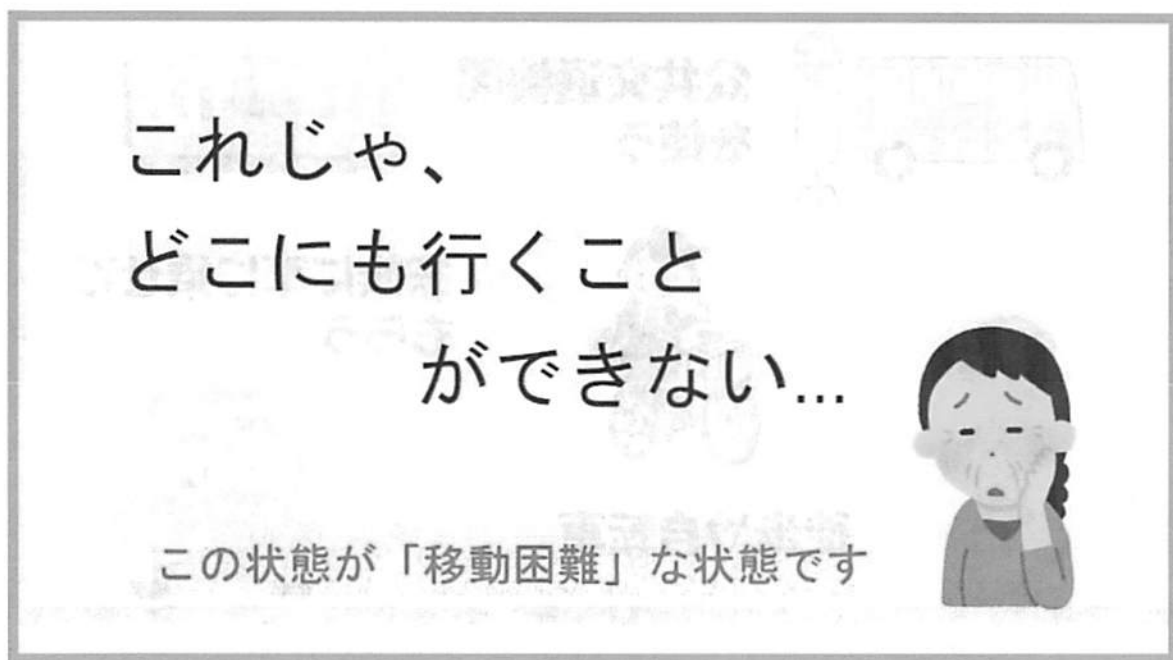 これじゃ、
どこにも行くこと
ができない...
この状態が「移動困難」な状態です